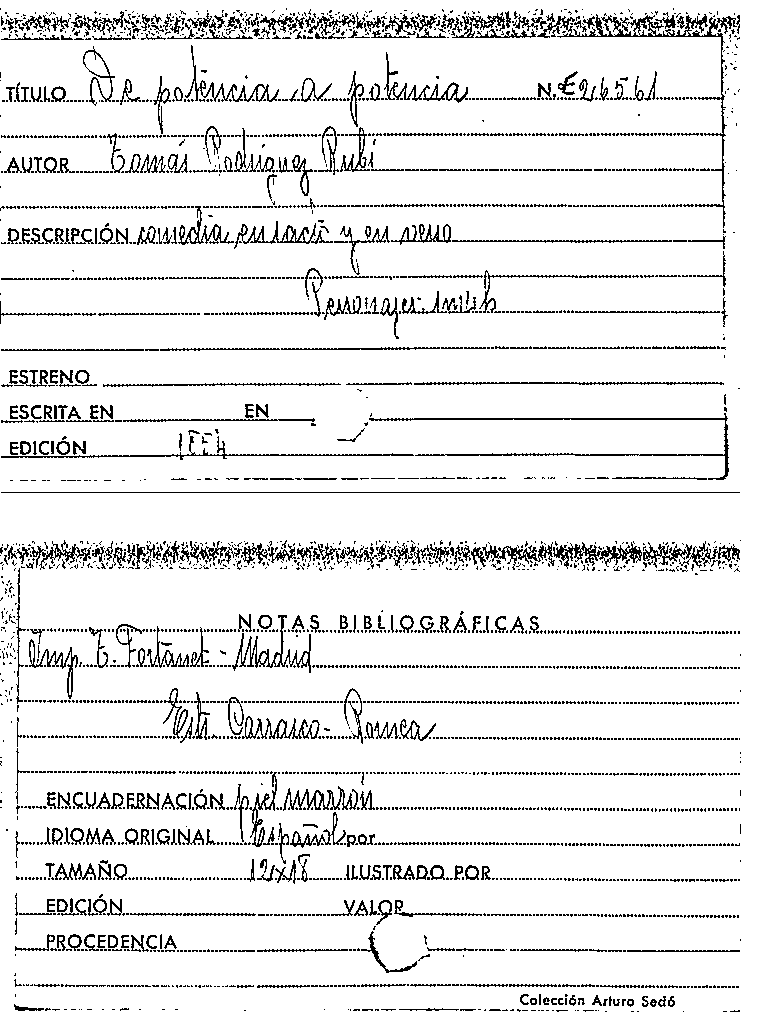 TÍTULO De potencia a potencia N.E26561
AUTOR Tomás Rodriguez Rubí
DESCRIPCIÓN comedia en 1 acto y en verso
Personajes.
ESTRENO
ESCRITA EN EN
EDICIÓN
NOTAS BIBLIOGRÁFICAS
Imp. T. Fortanet - Madrid
Estr. Carrasco - Romea
ENCUADERNACIÓN piel marrón
IDIOMA ORIGINAL Español por
TAMAÑO 12x18 ILUSTRADO POR
EDICIÓN VALOR
PROCEDENCIA
Colección Arturo Sedó